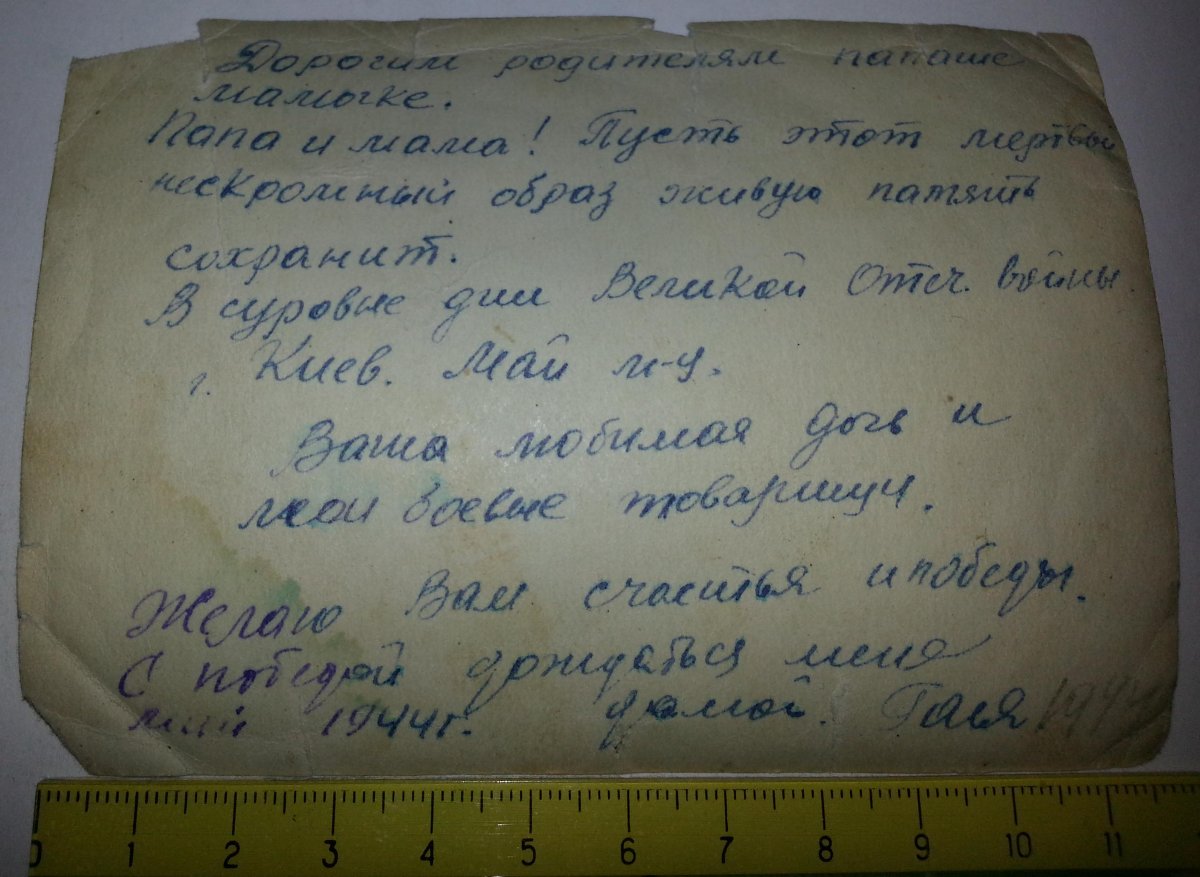 Дорогим родителям папаше
мамочке.
Папа и мама! Пусть этот мертвый
нескромный образ живую память
сохранит.
В суровые дни Великой Отеч. войны.
г. Киев. Май м-ц.
Ваша любимая дочь и
мои боевые товарищи.
Желаю Вам счастья и победы.
С победой дождаться меня
май 1944г. домой. Гася 1944
0 1 2 3 4 5 6 7 8 9 10 11